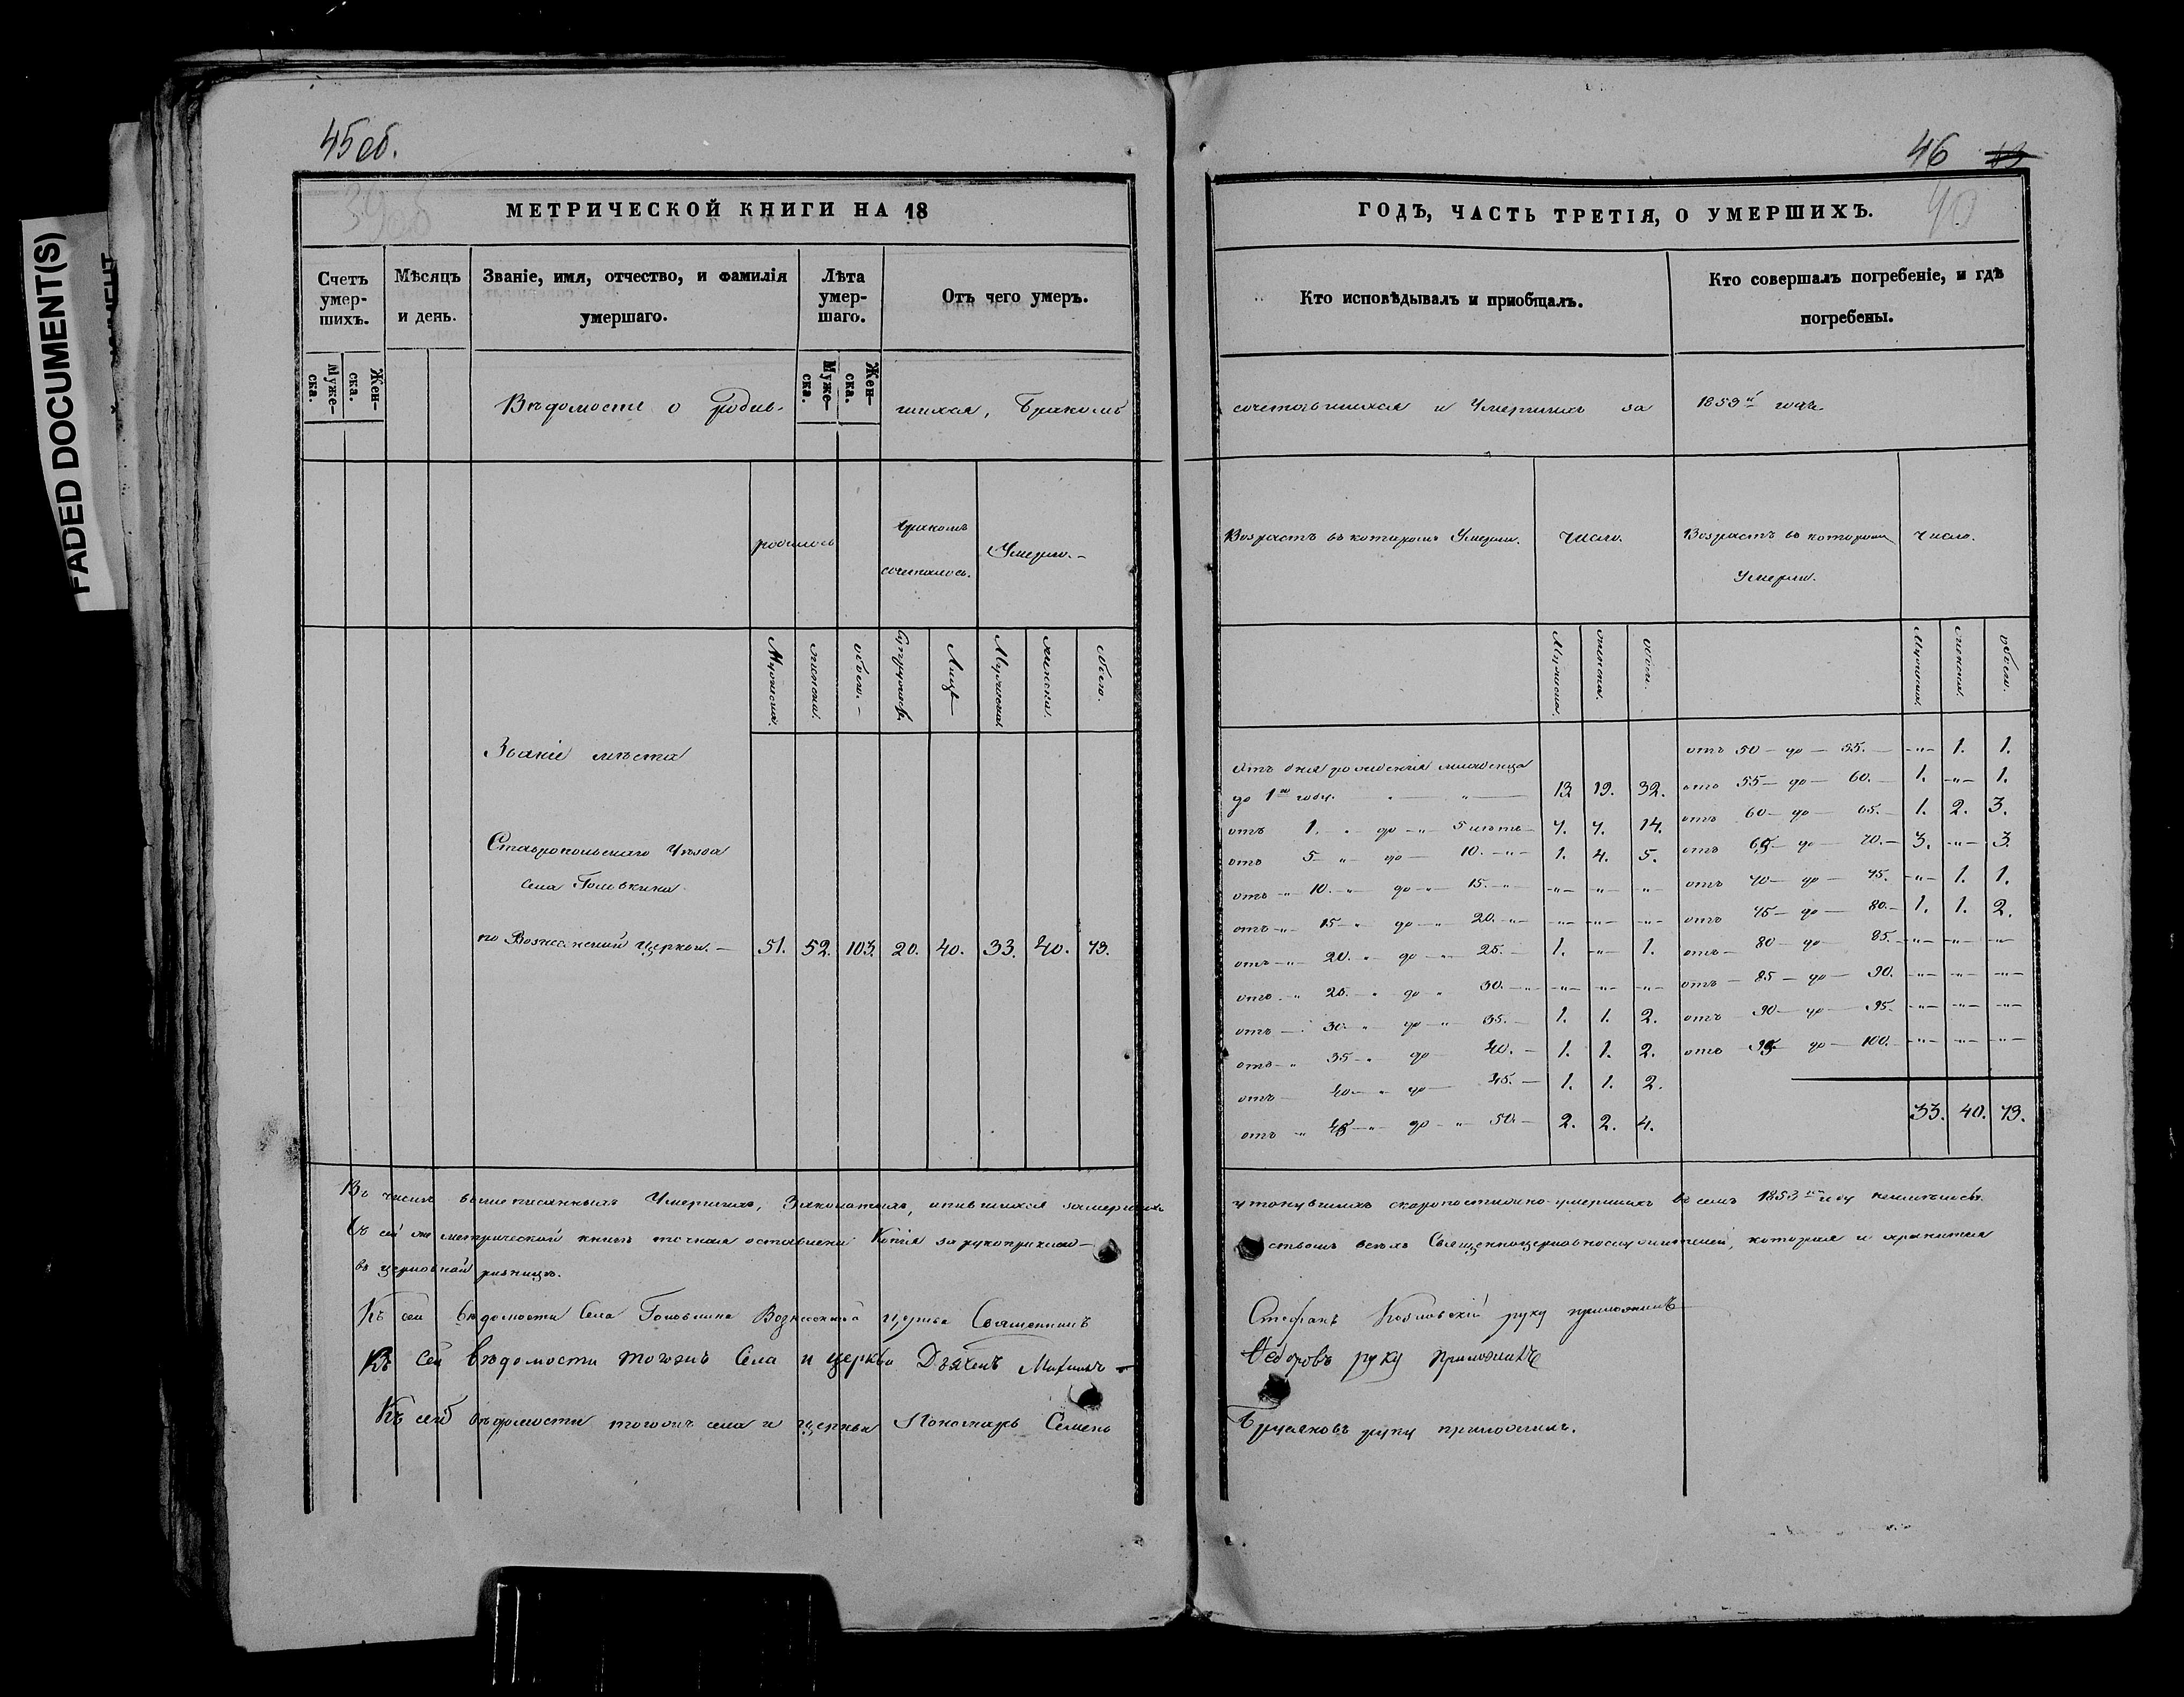 45 об.
39 об
МЕТРИЧЕСКОЙ КНИГИ НА 18
Счетъ умер-шихъ.
Муже-ска.
Жен-ска.
Мѣсяцъ и день.
Званіе, имя, отчество, и фамилія умершаго.
Лѣта умер-шаго.
Муже-ска.
Жен-ска.
Отъ чего умеръ.
Вѣдомость о родив-
шихся, Бракомъ
родилось
бракомъ сочеталось.
Умерло.-
Мужеска.
женска.
обоего.-
Супружествъ
Лицъ
Мужеска.
женска.
обоего.
Званіе мѣста
Ставропольскаго Уѣзда
села Головкина
по Вознесенской церкви. — 51. 52. 103. 20. 40. 33. 40. 73.
Въ числѣ вышеписанныхъ Умершихъ,
Съ сей же метрической книги точная оставлена Копія за рукоприклад-
въ церковной ризницѣ.
Къ сей вѣдомости Села Головкина Вознесенской церкви Священникъ
Къ сей вѣдомости тогожъ Села и церкви Дьяконъ Михаилъ
Къ сей вѣдомости тогожъ села и церкви Пономарь Семенъ
46 43
40
ГОДЪ, ЧАСТЬ ТРЕТІЯ, О УМЕРШИХЪ.
Кто исповѣдывалъ и пріобщалъ.
Кто совершалъ погребеніе, и гдѣ погребены.
сочетавшихся и Умершихъ за 1853й годъ
Возрастъ въ которомъ Умерли.
Число.
Возрастъ въ которомъ Умерли.
Число.
Мужеска.
женска.
обоего.
Мужеска.
женска.
обоего.
Отъ дня рожденія младенца
до 1го году. — „ — 13 19. 32.
отъ 1. „ до „ 5 лѣтъ 7. 7. 14.
отъ 5 — „ до — 10. — „ — 1. 4. 5.
отъ — „ 10. „ до — „ 15. — „ — „ — — „ — — „ —
отъ — „ 15 — „ до — „ 20. — „ — „ — — „ — — „ —
отъ — „ 20. „ до — „ 25. — 1. — „ — 1.
отъ — „ 25. — „ до — „ 30. — „ — „ — — „ — — „ —
отъ — 30 — „ до — „ 35. — 1. 1. 2.
отъ — „ 35 — „ до 40. — 1. 1. 2.
отъ — 40 — „ до — 45. — 1. 1. 2.
отъ — „ 45 — „ до — „ 50 — 2. 2. 4.
отъ 50 — до — 55. — — „ — 1. 1.
отъ 55 — до — 60. — 1. — „ — 1.
отъ 60 — до — 65. — 1. 2. 3.
отъ 65 — до — 70. — 3. — „ — 3.
отъ 70 — до — 75. — „ — 1. 1.
отъ 75 — до — 80. — 1. 1. 2.
отъ — 80 — до — 85. — „ — — „ — — „ —
отъ — 85 — до — 90. — „ — — „ — — „ —
отъ 90 — до — 95. — „ — — „ — — „ —
отъ 95 — до — 100. — „ — — „ — — „ —
33. 40. 73.
утонувшихъ скоропостижно-умершихъ въ семъ 1853м году неимѣлось.
ствомъ всѣхъ Священноцерковнослужителей, которая и хранится
Стефанъ Козловскій руку приложилъ
Ѳедоровъ руку приложилъ
руку приложилъ.
FADED DOCUMENT(S)